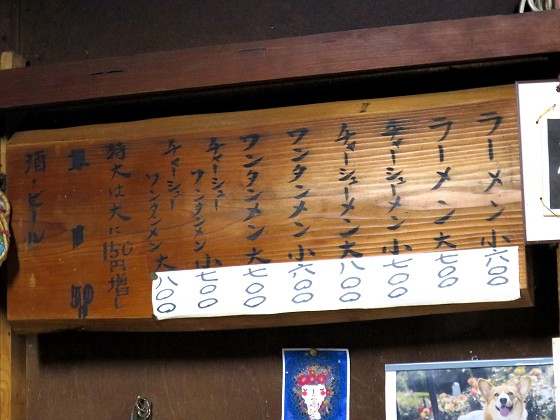 ラーメン小六〇〇
ラーメン大七〇〇
チャーシューメン小七〇〇
チャーシューメン大八〇〇
ワンタンメン小六〇〇
ワンタンメン大七〇〇
チャーシュー
ワンタンメン小七〇〇
チャーシュー
ワンタンメン大八〇〇
特大は大に150円増し
酒・ビール